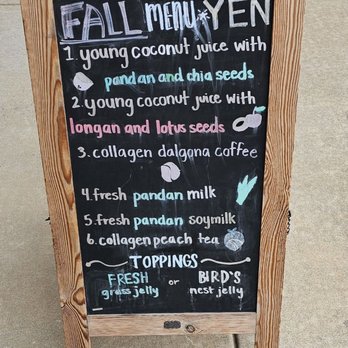 FALL MENU YEN
1. young coconut juice with
pandan and chia seeds
2. young coconut juice with
longan and lotus seeds
3. collagen dalgona coffee
4. fresh pandan milk
5. fresh pandan soymilk
6. collagen peach tea
TOPPINGS
FRESH or BIRD'S
grass jelly nest jelly